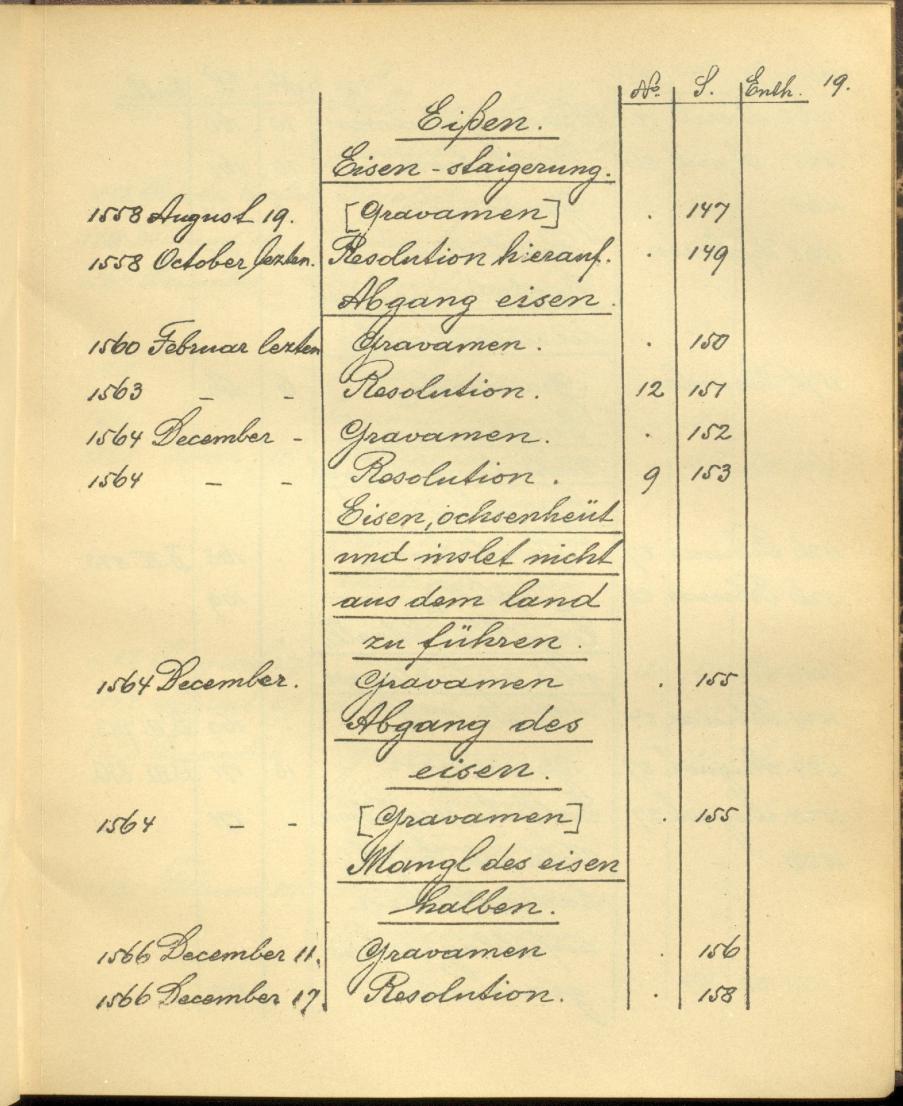 No. S. Enth. 19.
Eißen.
Eisen-staigerung.
1558 August 19. [Gravamen] . 147
1558 October lezten. Resolution hierauf. . 149
Abgang eisen.
1560 Februar lezten Gravamen. . 150
1563 - - Resolution. 12 151
1564 December - Gravamen. . 152
1564 - - Resolution. 9 153
Eisen, ochsenheüt
und inslet nicht
aus dem land
zu führen.
1564 December. Gravamen . 155
Abgang des
eisen.
1564 - - [Gravamen] . 155
Mangl des eisen
halben.
1566 December 11. Gravamen . 156
1566 December 17. Resolution. . 158